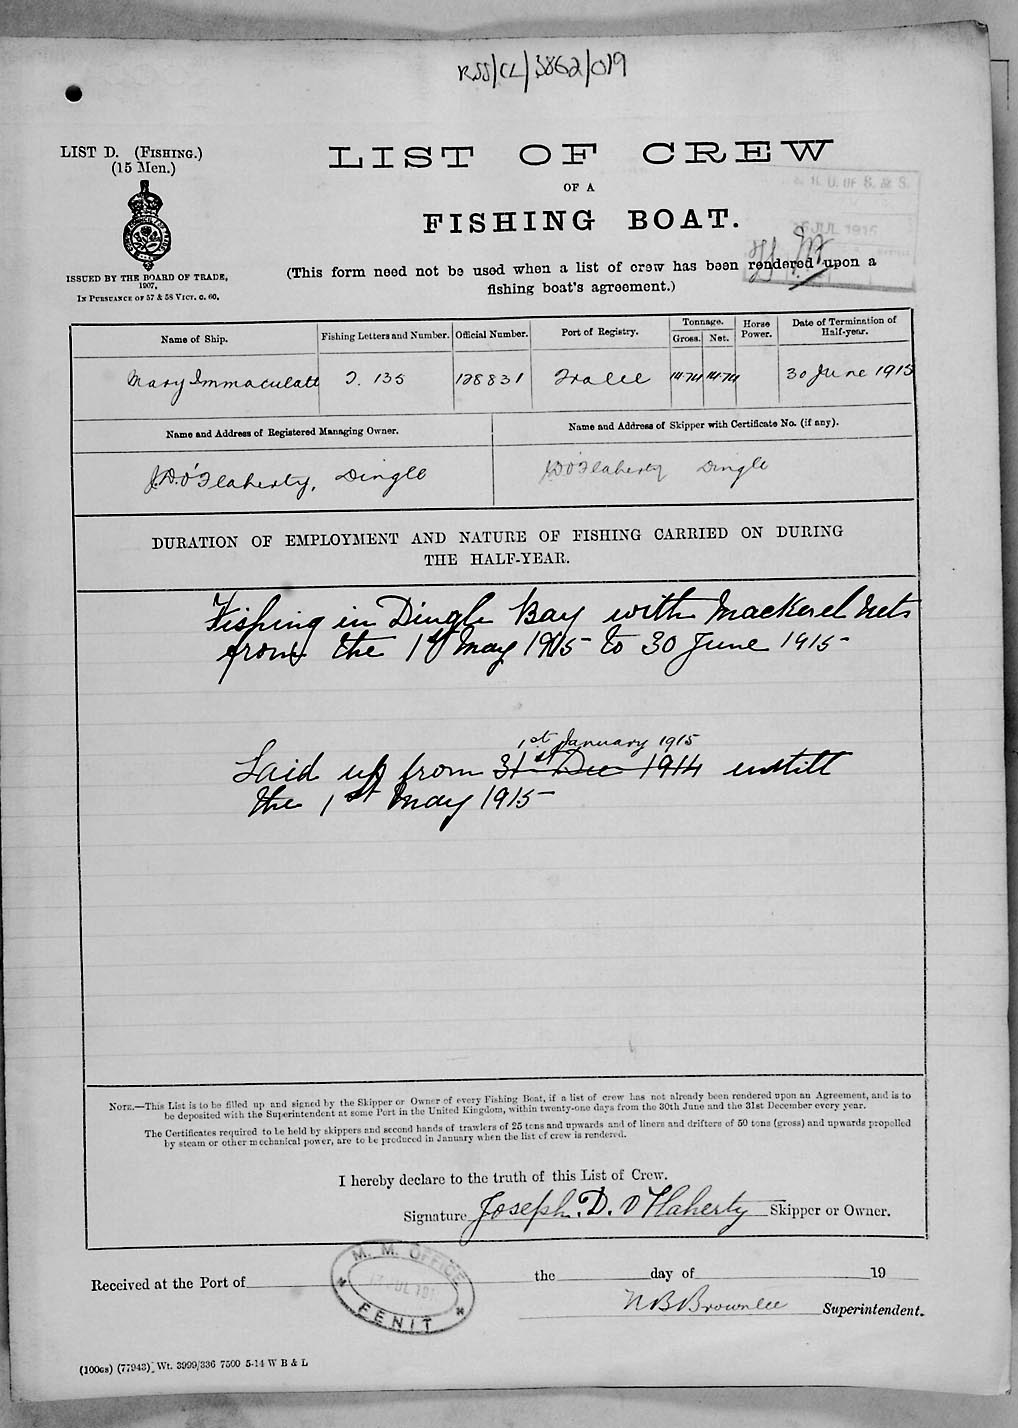 RSS/CL/3862/019
LIST D. (FISHING.)
(15 Men.)
LIST OF CREW
OF A
FISHING BOAT.
ISSUED BY THE BOARD OF TRADE,
1907,
IN PURSUANCE OF 57 & 58 VICT. C. 60.
R. U. OF S. & S.
JUL 1915
(This form need not be used when a list of crew has been rendered upon a
fishing boat's agreement.)
Name of Ship. Fishing Letters and Number. Official Number. Port of Registry. Tonnage. Gross. Net. Horse Power. Date of Termination of Half-year.
Mary Immaculate T. 135 128831 Tralee 14.74 14.74 30 June 1915
Name and Address of Registered Managing Owner. Name and Address of Skipper with Certificate No. (if any).
J.D. O'Flaherty, Dingle J.D O'Flaherty Dingle
DURATION OF EMPLOYMENT AND NATURE OF FISHING CARRIED ON DURING
THE HALF-YEAR.
Fishing in Dingle Bay with Mackerel Nets
from the 1st May 1915 to 30 June 1915
1st January 1915
Laid up from 31st Dec 1914 untill
the 1st May 1915
NOTE.—This List is to be filled up and signed by the Skipper or Owner of every Fishing Boat, if a list of crew has not already been rendered upon an Agreement, and is to
be deposited with the Superintendent at some Port in the United Kingdom, within twenty-one days from the 30th June and the 31st December every year.
The Certificates required to be held by skippers and second hands of trawlers of 25 tons and upwards and of liners and drifters of 50 tons (gross) and upwards propelled
by steam or other mechanical power, are to be produced in January when the list of crew is rendered.
I hereby declare to the truth of this List of Crew.
Signature Joseph. D. O Flaherty Skipper or Owner.
M. M. OFFICE
JUL 191
FENIT
Received at the Port of the day of 19
N B Brownlee Superintendent.
(100GS) (77943). Wt. 3999/336 7500 5-14 W B & L